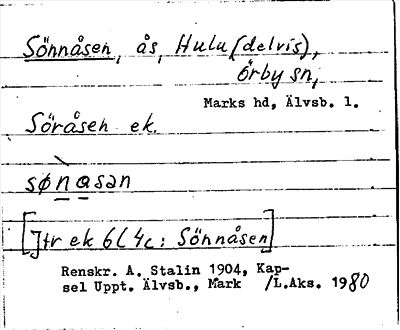 Sönnåsen, ås, Hulu (delvis),
Örby sn,
Marks hd, Älvsb. l.
Söråsen ek.
sønasan
[Jtr ek 6C4c: Sönnåsen]
Renskr. A. Stalin 1904, Kap-
sel Uppt. Älvsb., Mark /L.Aks. 1980